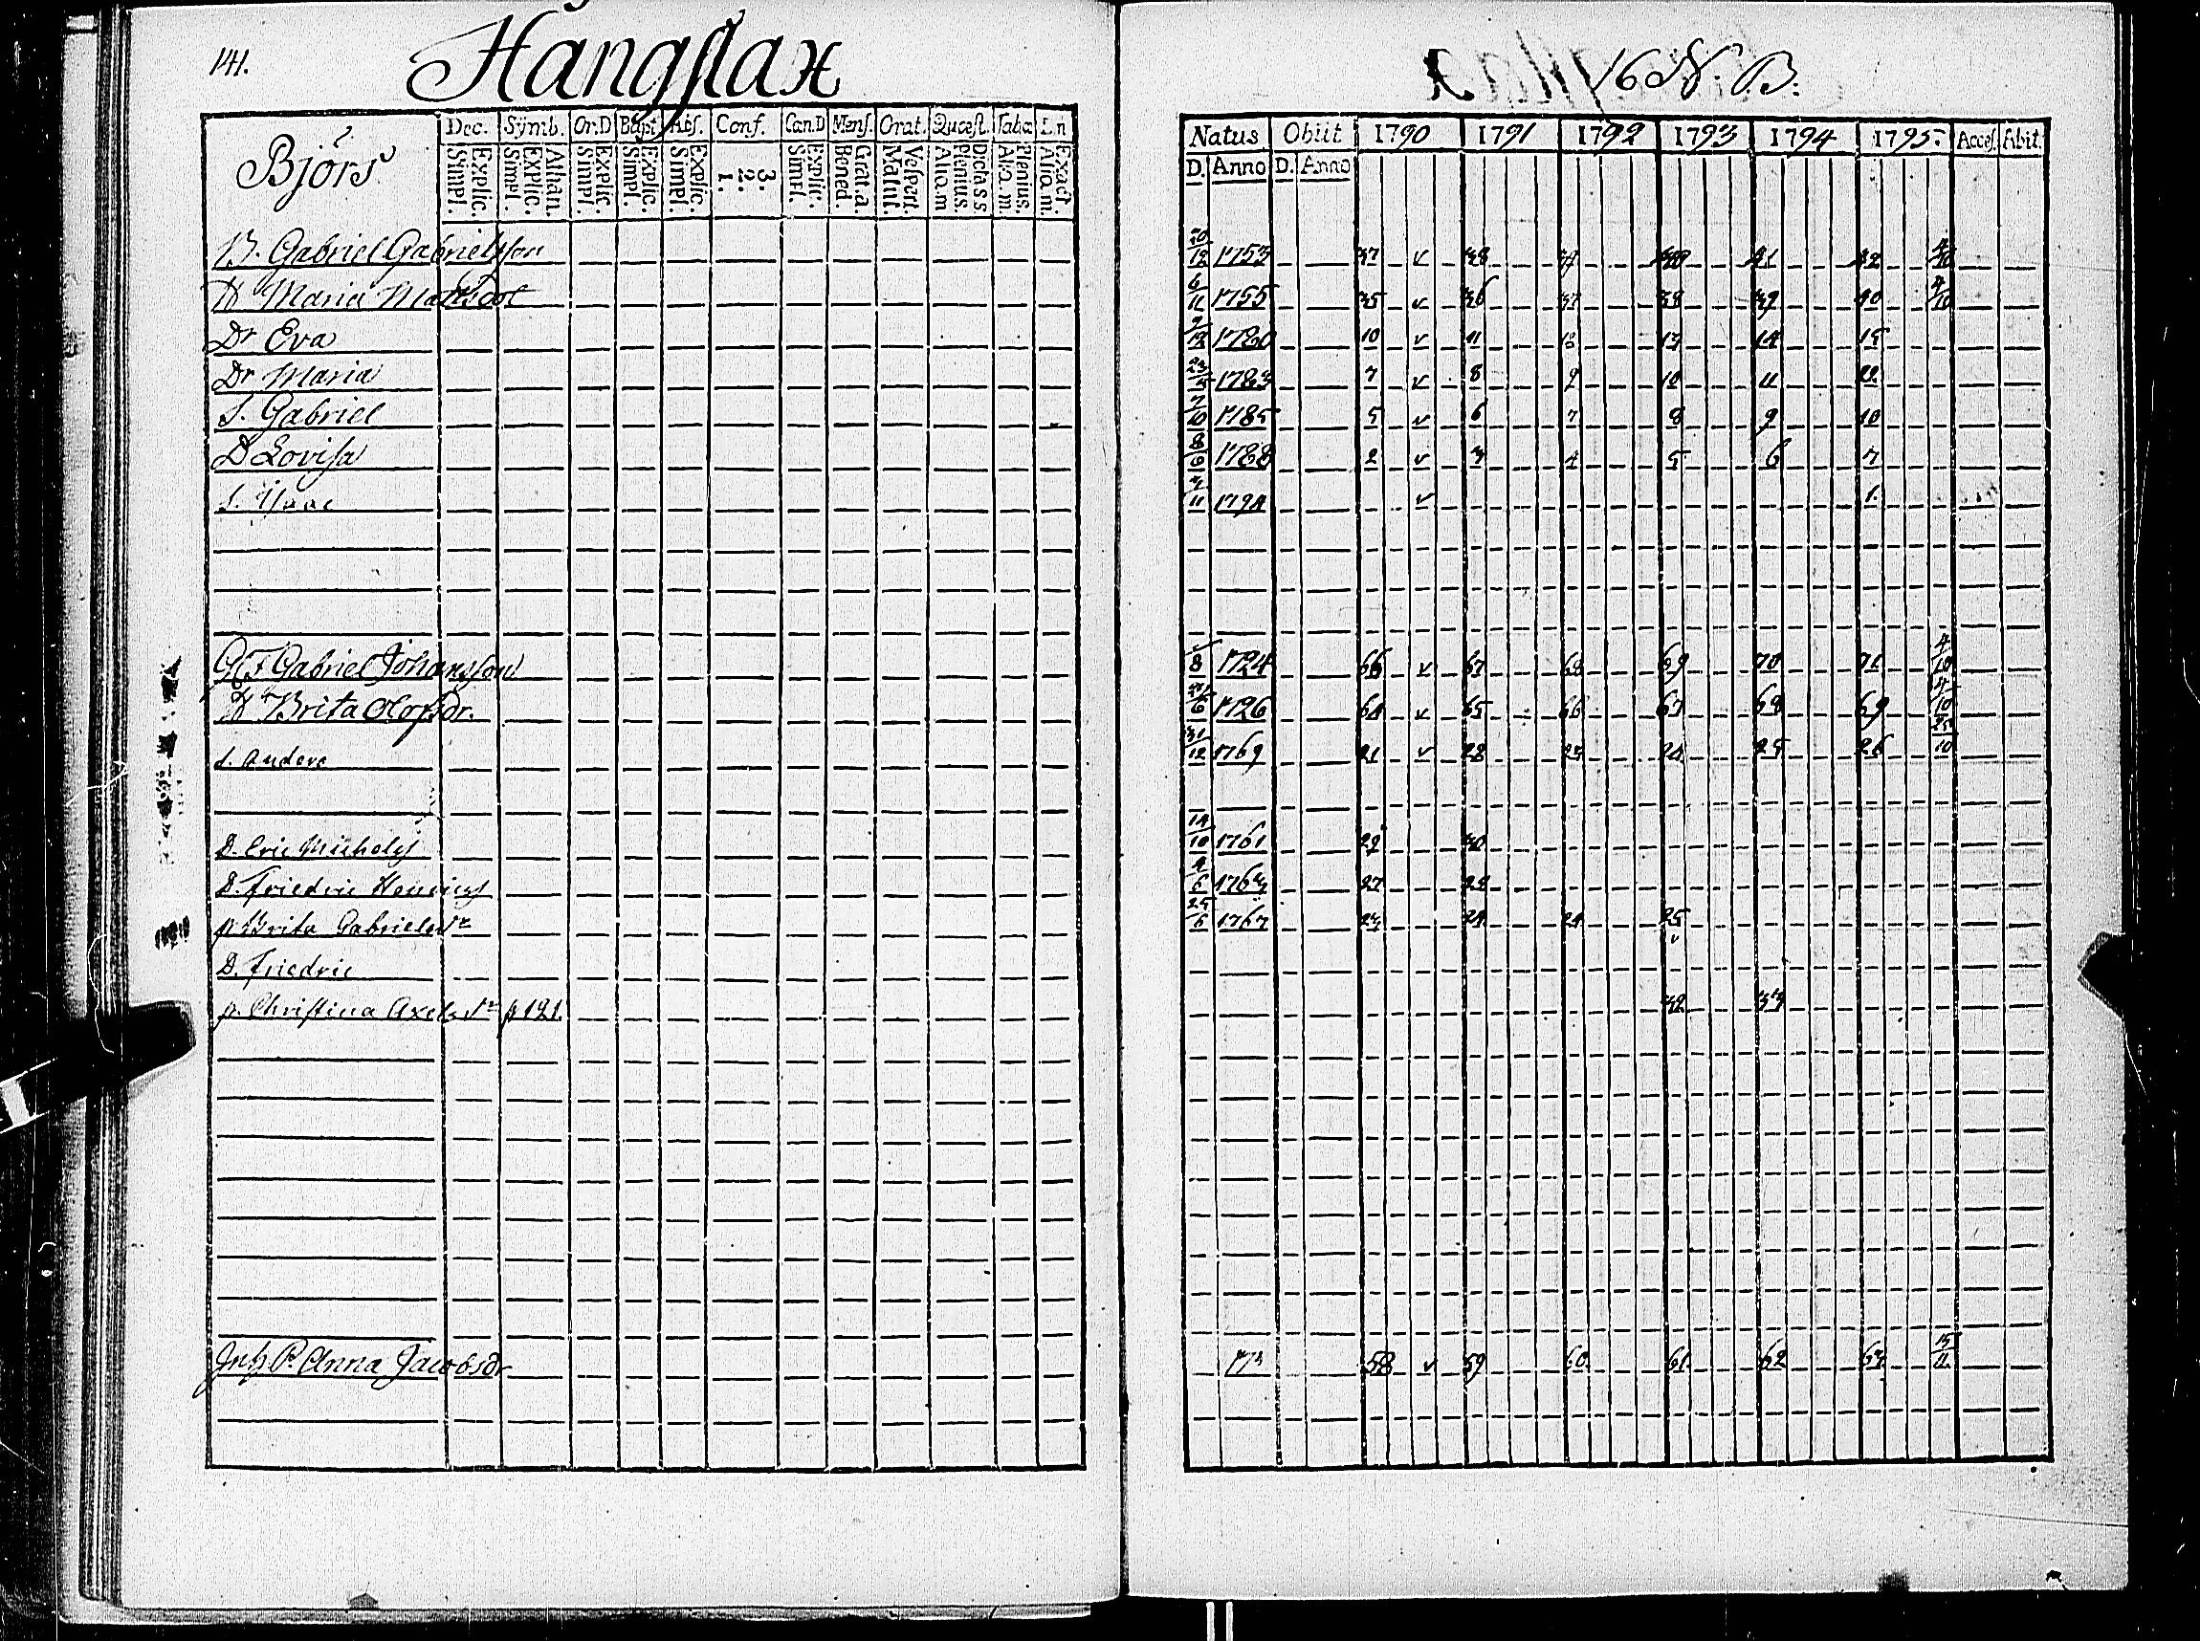 141. Hangslax 16 N. B.
2
Björs
Dec. Symb. Or.D Bapt. Abs. Conf. Can.D Mens. Orat. Quæst. Taba
Simpl. Explic. Simpl. Explic. Athan. Simpl. Explic. Simpl. Explic. Simpl. Explic. 1. 2. 3. Simpl. Explic. Bened. Grat. a. Matut. Vespert. Aliq. m Plenius. Dicta s s Aliq. m. Plenius. Aliq. m. Exact.
Natus Obiit 1790 1791 1792 1793 1794 1795. Acces. Abit.
D. Anno D. Anno
B. Gabriel Gabrielsson 20/12 1753 37 v 38 41 42 4/10
H Maria Matsdot 6/11 1755 35 v 36 37 38 39 40 4/10
Dr Eva 1780 10 v 11 13 14 15
Dr Maria 23/5 1783 7 v 8 9 10 11
S. Gabriel 7/10 1785 5 v 6 7 8 9 10
D Lovisa 8/6 1788 2 v 3 4 5 6 7
S. Isaac 1794 v 1.
Gabriel Johansson 1724 66 v 67 68 69 70 71 4/10
H Brita Olofsdr. 1726 64 v 65 66 67 68 69 4/10
S. Anders 31/12 1769 21 v 22 23 24 25 26 25/10
D. Eric Michels 14/10 1761 29 30
D. Friedric 27 28
p. Brita Gabrielsdr 25/6 1767 23 24 24 25 v
D. Friedric
p. Christina Axelsdr p 121. 32 33
Inh. P. Anna Jacobsdr 173 58 v 59 60 61 62 63 15/11